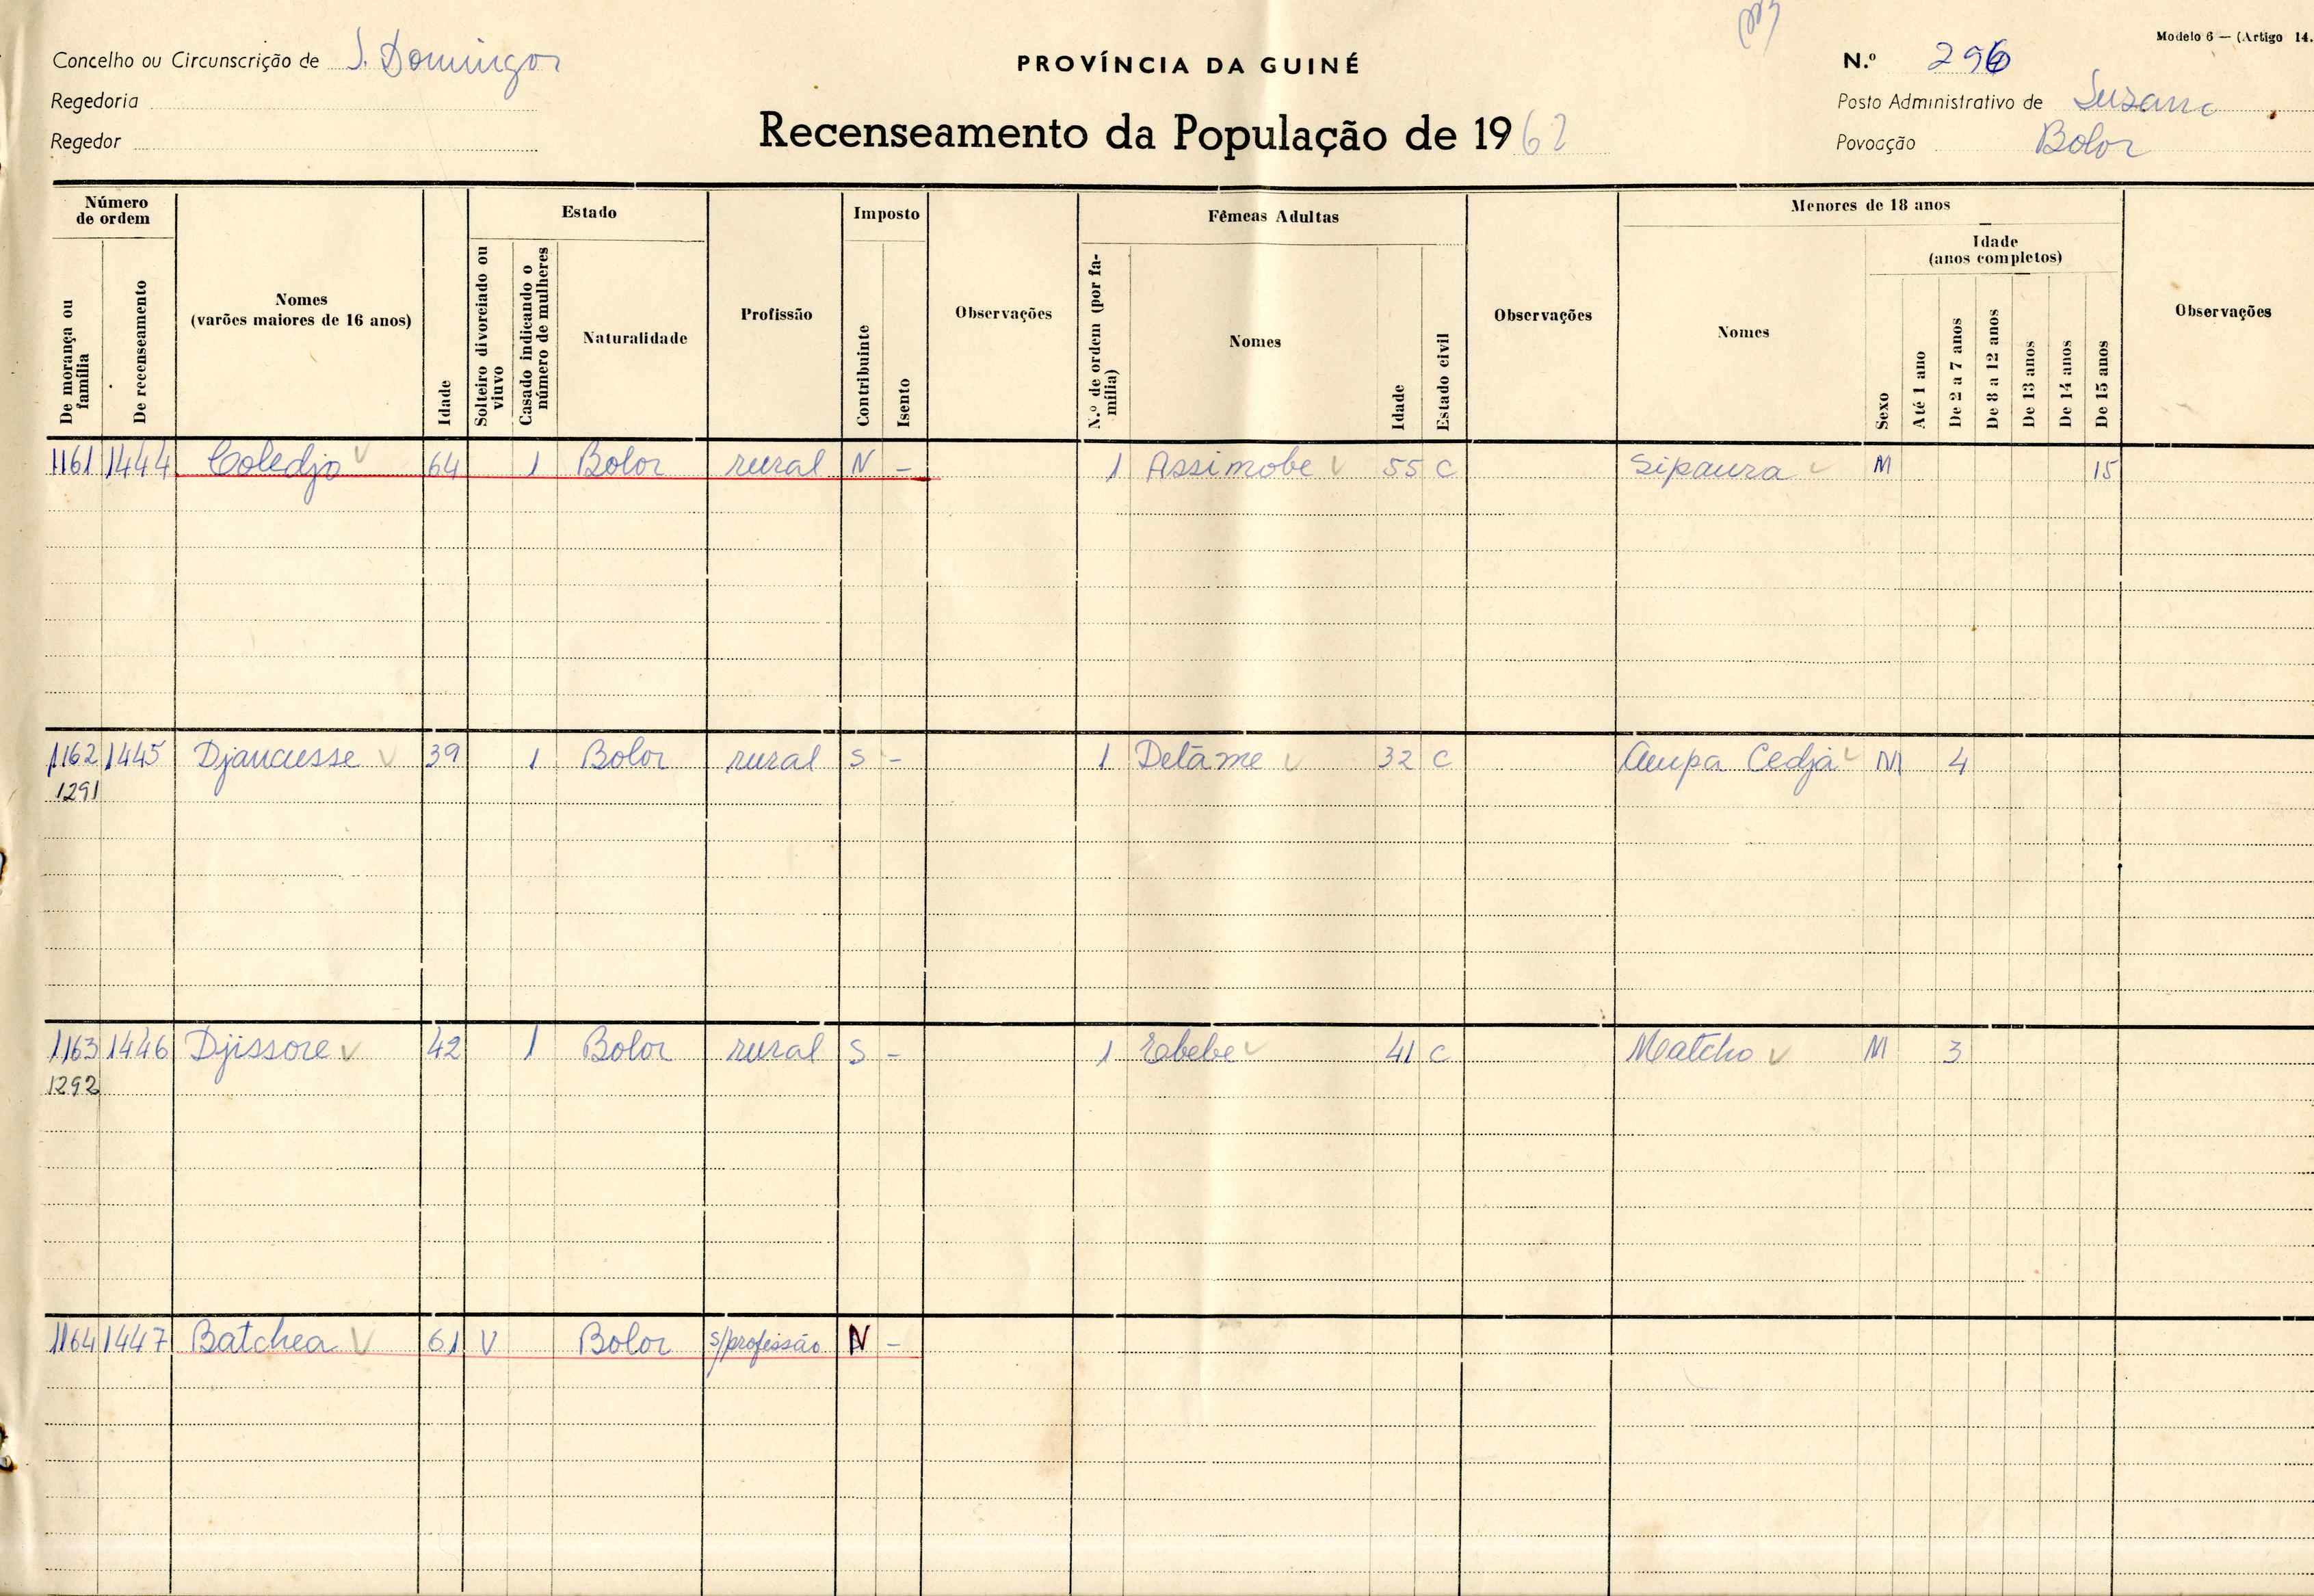 Modelo 6 — (Artigo 14.
Concelho ou Circunscrição de S. Domingos
PROVÍNCIA DA GUINÉ
N.º 296
Regedoria
Posto Administrativo de Suzana
Regedor
Recenseamento da População de 1962
Povoação Bolor
Número de ordem
De morança ou família
De recenseamento
Nomes
(varões maiores de 16 anos)
Idade
Estado
Solteiro divorciado ou viuvo
Casado indicando o número de mulheres
Naturalidade
Profissão
Imposto
Contribuinte
Isento
Observações
Fêmeas Adultas
N.º de ordem (por família)
Nomes
Idade
Estado civil
Observações
Menores de 18 anos
Nomes
Sexo
Idade
(anos completos)
Até 1 ano
De 2 a 7 anos
De 8 a 12 anos
De 13 anos
De 14 anos
De 15 anos
Observações
1161 1444 Coledjo 64 1 Bolor rural N - 1 Assimobe 55 C Sipaura M 15
1162 1445 Djancusse 39 1 Bolor rural S - 1 Detāme 32 C Aupa Cedjá M 4
1291
1163 1446 Djissore 42 1 Bolor rural S - 1 Ebebe 41 C Matcho M 3
1292
1164 1447 Batchea 61 V Bolor s/profissão N -